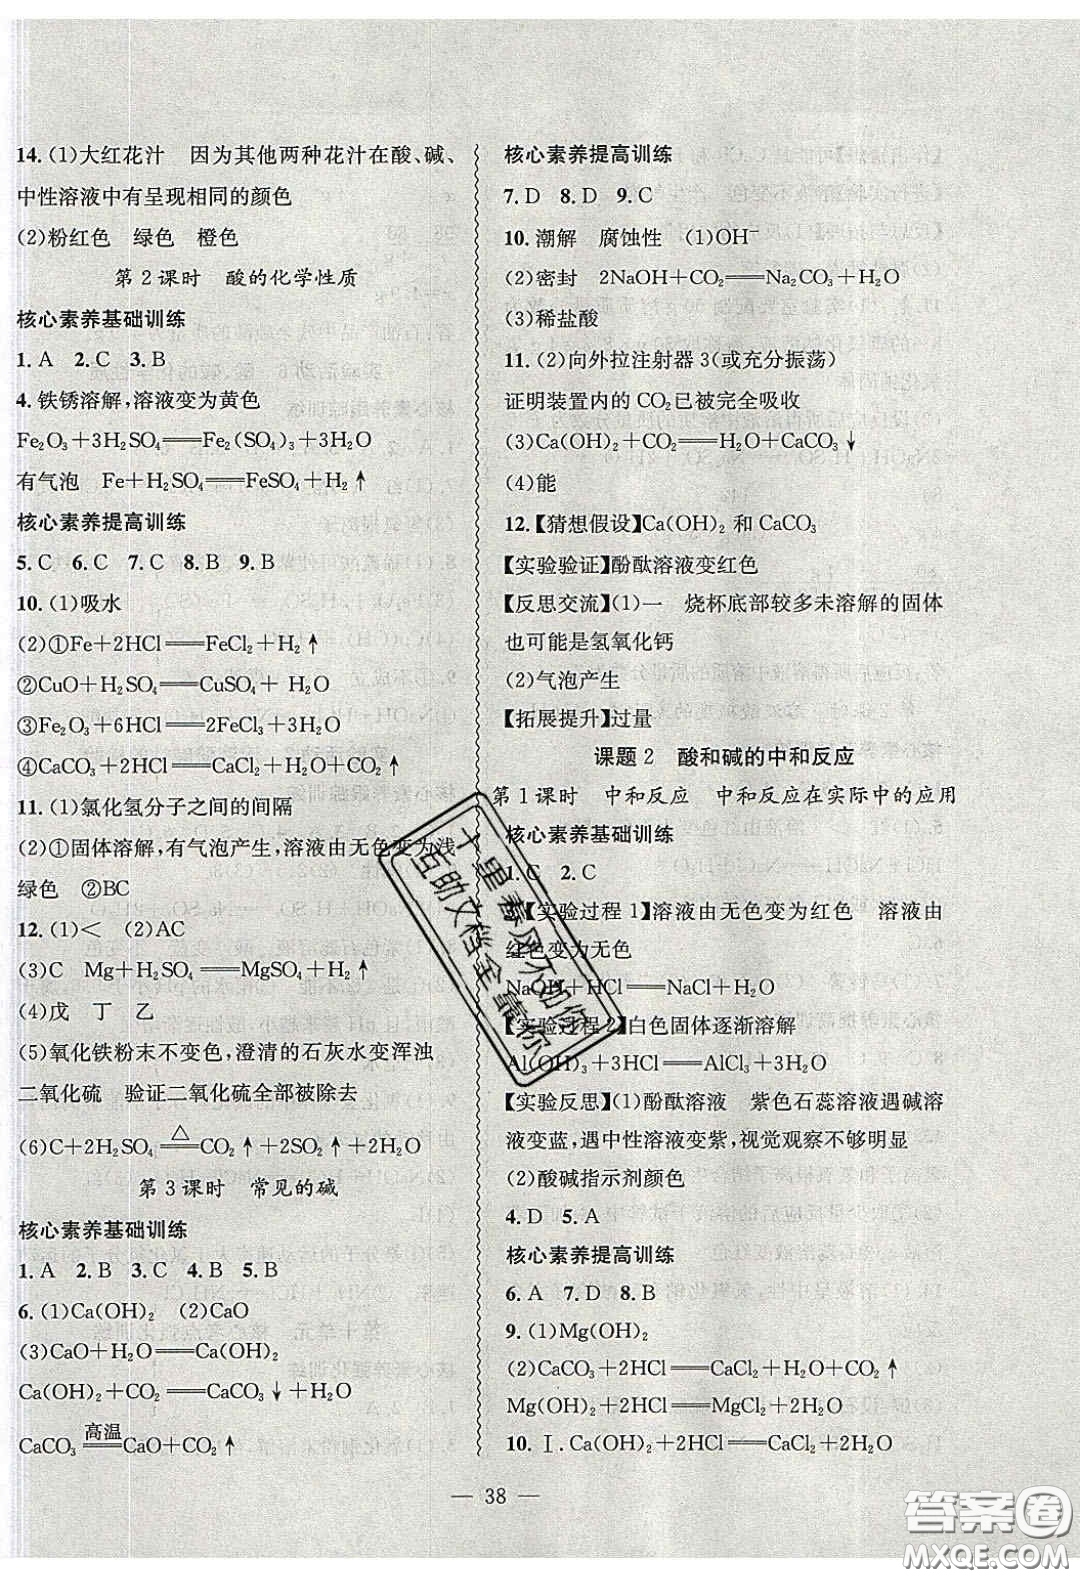 14.(1)大红花汁　因为其他两种花汁在酸、碱、
中性溶液中有呈现相同的颜色
(2)粉红色　绿色　橙色
第2课时　酸的化学性质
核心素养基础训练
1. A　2. C　3. B
4. 铁锈溶解,溶液变为黄色
Fe₂O₃+3H₂SO₄══Fe₂(SO₄)₃+3H₂O
有气泡　Fe+H₂SO₄══FeSO₄+H₂↑
核心素养提高训练
5. C　6. C　7. C　8. B　9. B
10.(1)吸水
(2)①Fe+2HCl══FeCl₂+H₂↑
②CuO+H₂SO₄══CuSO₄+ H₂O
③Fe₂O₃+6HCl══2FeCl₃+3H₂O
④CaCO₃+2HCl══CaCl₂+H₂O+CO₂↑
11.(1)氯化氢分子之间的间隔
(2)①固体溶解,有气泡产生,溶液由无色变为浅
绿色　②BC
12.(1)<　(2)AC
(3)C　Mg+H₂SO₄══MgSO₄+H₂↑
(4)戊　丁　乙
(5)氧化铁粉末不变色,澄清的石灰水变浑浊
二氧化硫　验证二氧化硫全部被除去
(6)C+2H₂SO₄══△CO₂↑+2SO₂↑+2H₂O
第3课时　常见的碱
核心素养基础训练
1. A　2. B　3. C　4. B　5. B
6.(1)Ca(OH)₂　(2)CaO
(3)CaO+H₂O══Ca(OH)₂
Ca(OH)₂+CO₂══CaCO₃↓+H₂O
CaCO₃══高温CaO+CO₂↑
核心素养提高训练
7. D　8. D　9. C
10. 潮解　腐蚀性　(1)OH⁻
(2)密封　2NaOH+CO₂══Na₂CO₃+H₂O
(3)稀盐酸
11.(2)向外拉注射器3(或充分振荡)
证明装置内的CO₂已被完全吸收
(3)Ca(OH)₂+CO₂══H₂O+CaCO₃↓
(4)能
12.【猜想假设】Ca(OH)₂和CaCO₃
【实验验证】酚酞溶液变红色
【反思交流】(1)一　烧杯底部较多未溶解的固体
也可能是氢氧化钙
(2)气泡产生
【拓展提升】过量
课题2　酸和碱的中和反应
第1课时　中和反应　中和反应在实际中的应用
核心素养基础训练
1. C　2. C
【实验过程1】溶液由无色变为红色　溶液由
红色变为无色
NaOH+HCl══NaCl+H₂O
【实验过程2】白色固体逐渐溶解
Al(OH)₃+3HCl══AlCl₃+3H₂O
【实验反思】(1)酚酞溶液　紫色石蕊溶液遇碱溶
液变蓝,遇中性溶液变紫,视觉观察不够明显
(2)酸碱指示剂颜色
4. D　5. A
核心素养提高训练
6. A　7. D　8. B
9.(1)Mg(OH)₂
(2)CaCO₃+2HCl══CaCl₂+H₂O+CO₂↑
Mg(OH)₂+2HCl══MgCl₂+2H₂O
10. Ⅰ. Ca(OH)₂+2HCl══CaCl₂+2H₂O
十里春风不如你
互助文档全靠你
— 38 —
答案圈
MXQE.COM